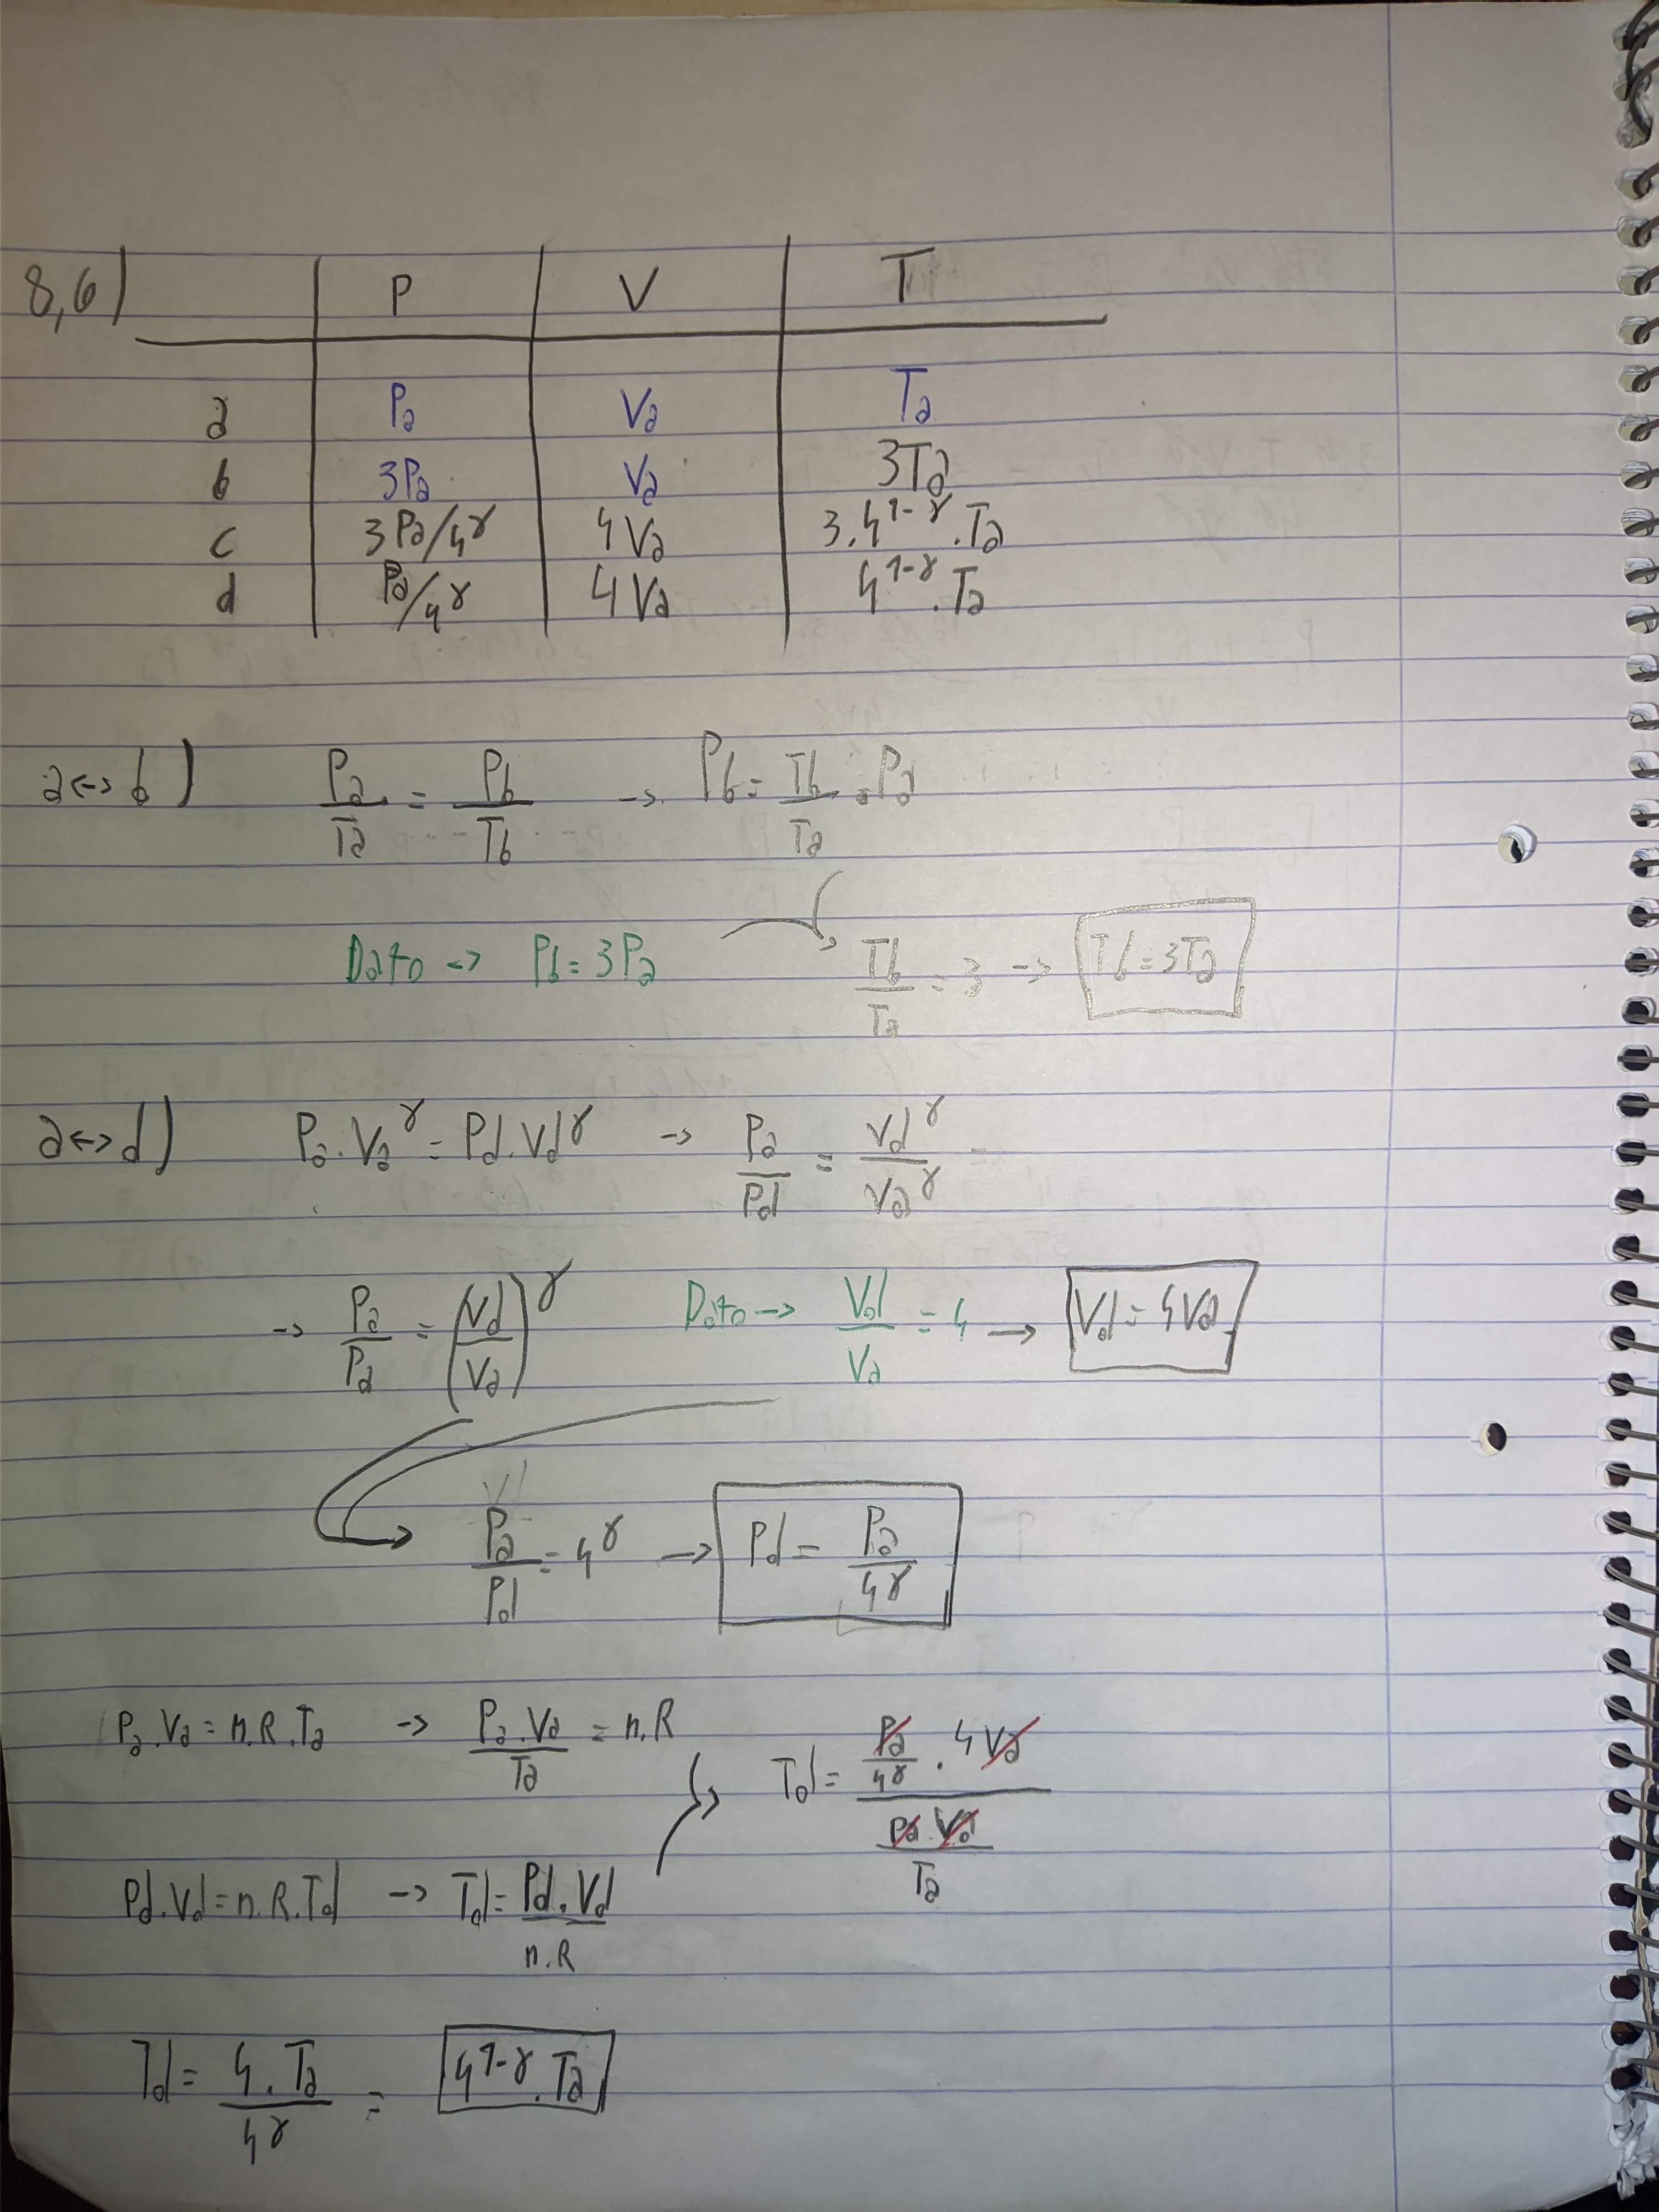 8,6) P V T
a Pa Va Ta
b 3Pa Va 3Ta
c 3Pa/4^γ 4Va 3.4^1-γ.Ta
d Pa/4^γ 4Va 4^1-γ.Ta
a<->b) Pa/Ta = Pb/Tb -> Pb = Tb/Ta . Pa
Dato -> Pb = 3Pa Tb/Ta = 3 -> Tb = 3Ta
a<->d) Pa.Va^γ = Pd.Vd^γ -> Pa/Pd = Vd^γ/Va^γ =
-> Pa/Pd = (Vd/Va)^γ Dato -> Vd/Va = 4 -> Vd = 4Va
Pa/Pd = 4^γ -> Pd = Pa/4^γ
Pa.Va = n.R.Ta -> Pa.Va/Ta = n.R Td = (Pa/4^γ . 4Va)/(Pa.Va/Ta)
Pd.Vd = n.R.Td -> Td = Pd.Vd/n.R
Td = 4.Ta/4^γ = 4^1-γ.Ta